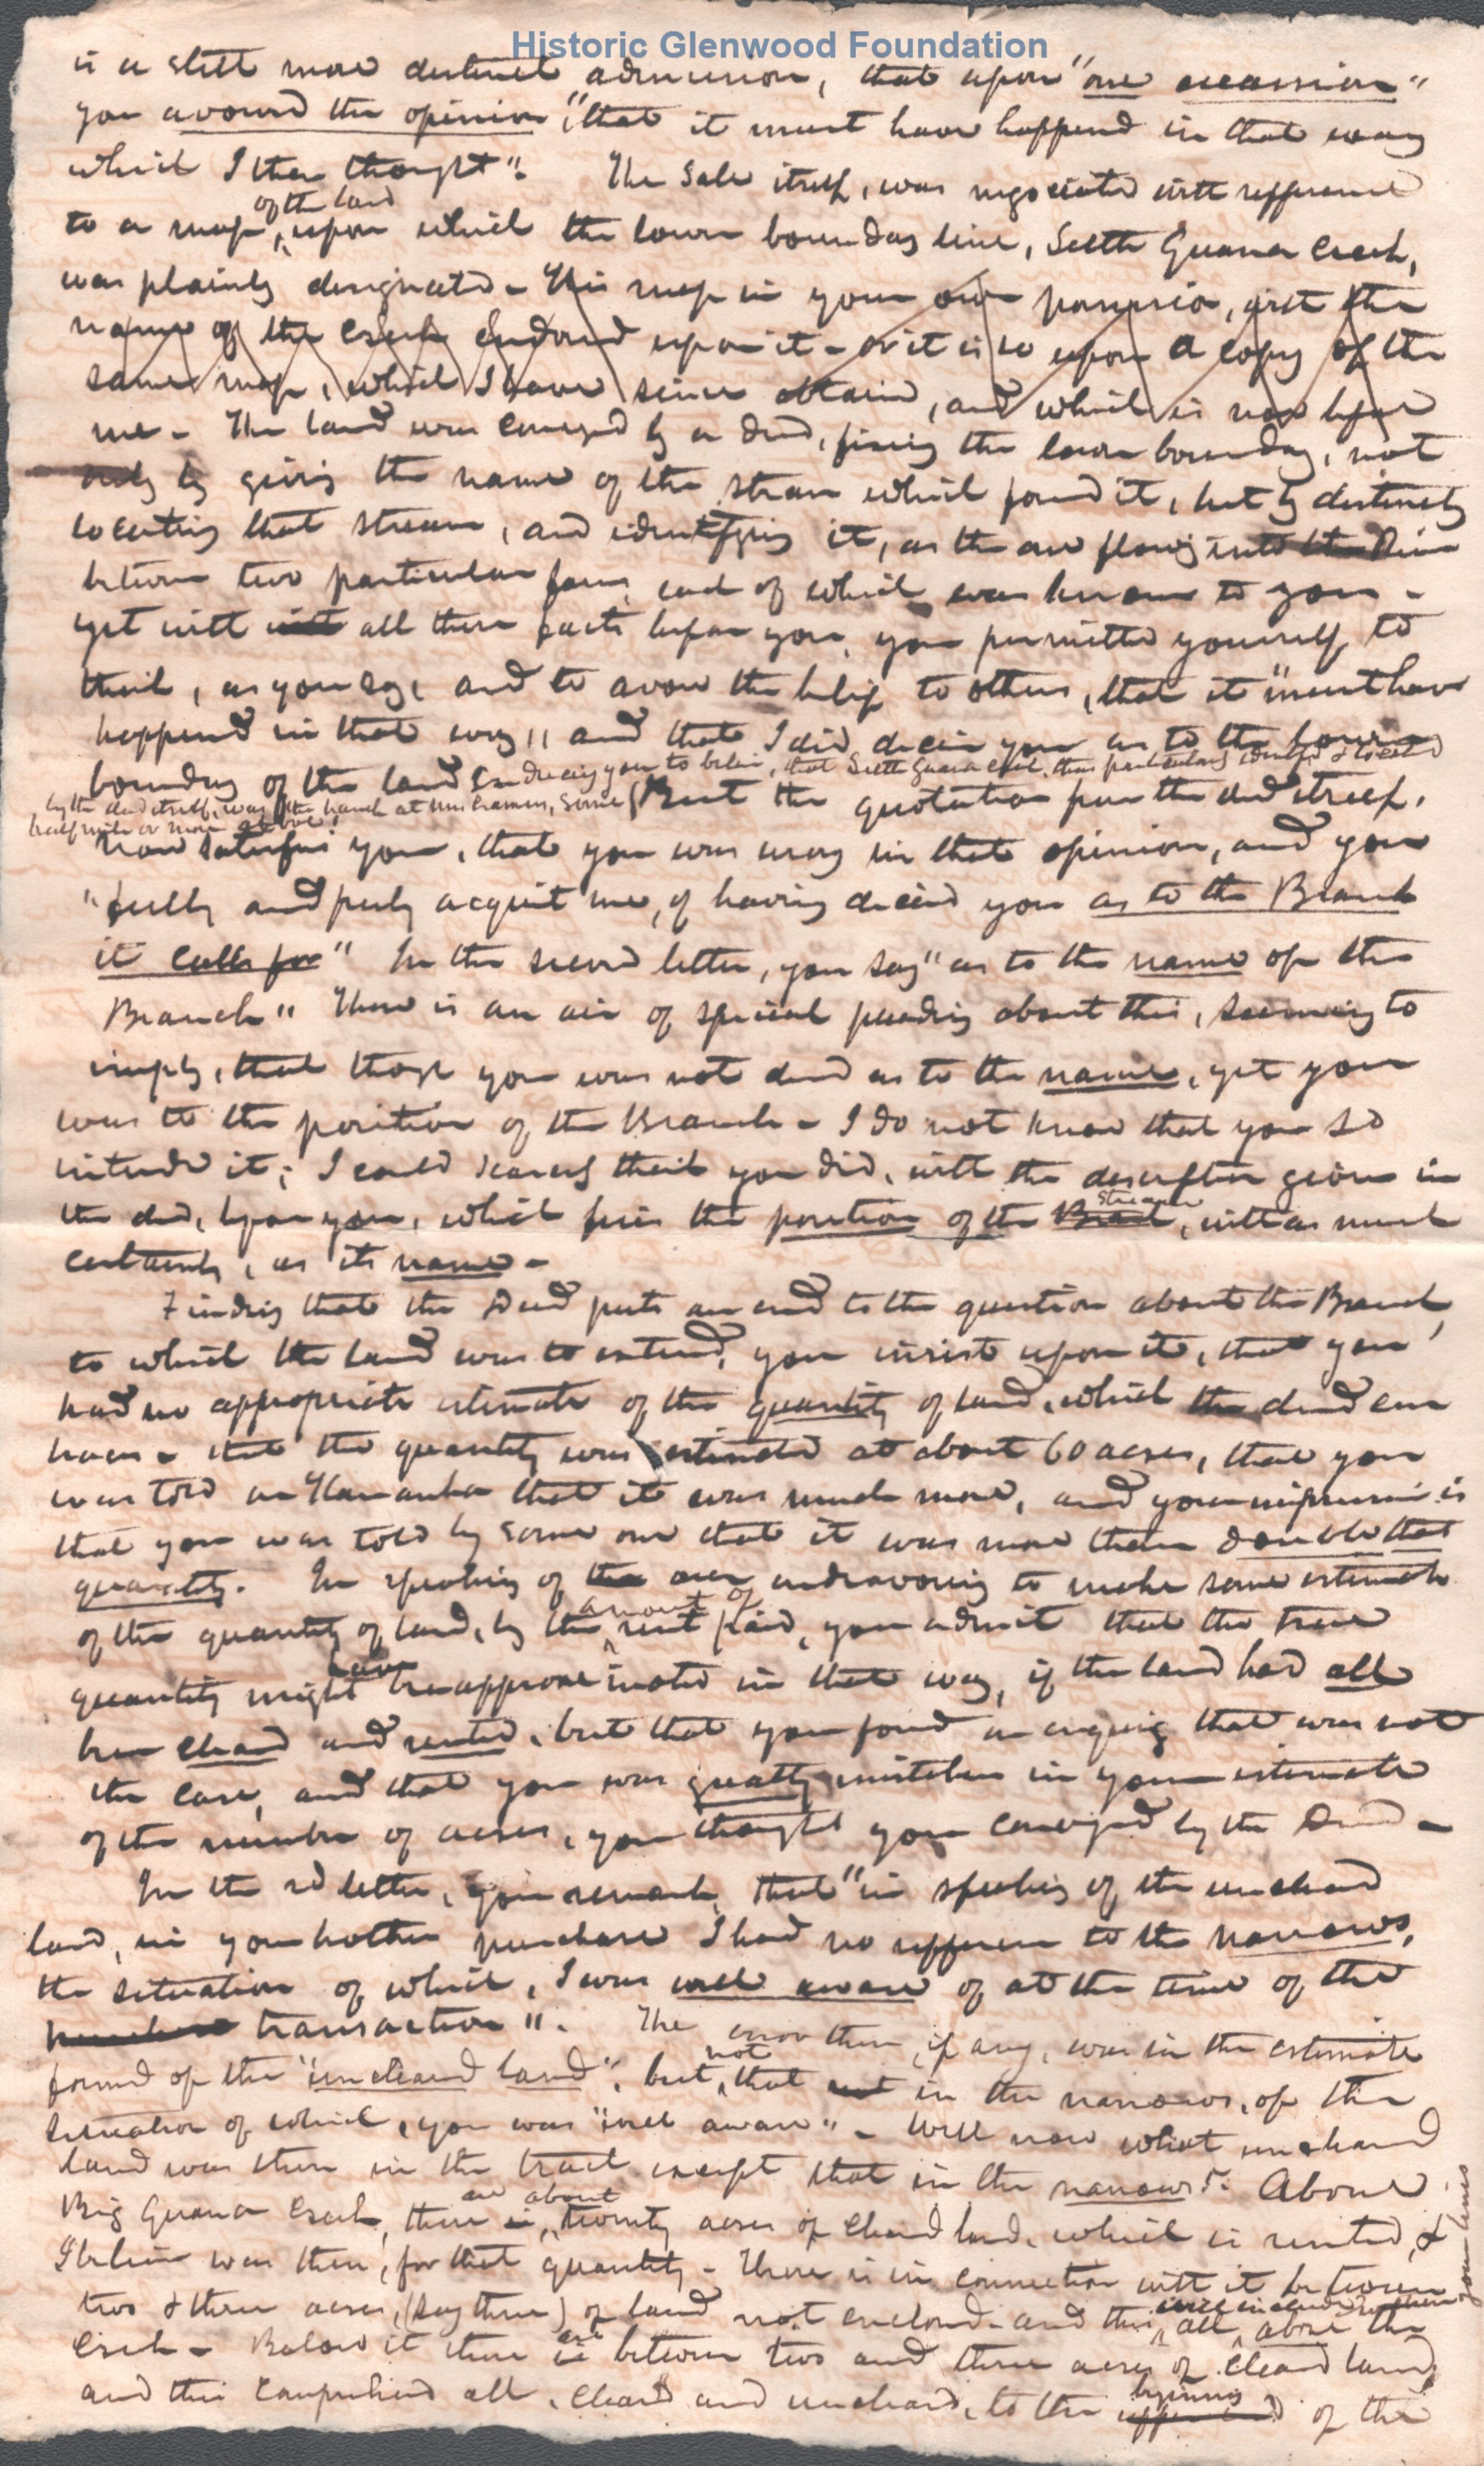 Historic Glenwood Foundation
is a still more distinct admission, that upon "one occassion"
you avowed the opinion, "that it must have happend in that way
which I then thought". The Sale itself, was negociated with refference
of the land
to a map, upon which the lower bounday line, Little Guana Creek,
was plainly designated - This map in your own possession, with the
name of the Creek Endorsed upon it - or it is so upon a copy of the
same map, which I have since obtained, and which is now before
me - The land was conveyed by a deed, fixing the lower bounday, not
only by giving the name of the stream which formed it, but by distinctly
locating that stream, and identifying it, as the one flowing into the River
between two particular farms each of which was known to you -
yet with all these facts before you, you permitted yourself to
think, as you say, and to avow the belief to others, that it "must have
happened in that way" and that I did deceive you as to the lower
boundry of the land Inducing you to believe, that Little Guana Creek, thus particularly identified & located
by the deed itself, was the branch at Mrs. , some
half mile or more above! But the quotation from the deed itself,
now satisfies you, that you was wrong in that opinion, and you
"fully and freely acquit me, of having deceived you as to the Branch
it calls for" In the second letter, you say "as to the name of the
Branch" There is an air of special pleading about this, seeming to
imply, that though you was not deceived as to the name, yet you
was to the position of the Branch - I do not know that you so
intended it; I could scarcely think you did, with the description given in
stream
the deed, before you, which fixes the position of the Branch, with as much
certainty, as its name -
Finding that the Deed puts an end to the question about the Branch,
to which the land was to extend, you insist upon it, that you
had no appropriate estimate of the quantity of land, which the deed em
braces - that the quantity was estimated at about 60 acres, that you
was told that it was much more, and your impression is
that you was told by some one that it was more than double that
quantity. In speaking of the our endeavouring to make some estimate
amount of
of the quantity of land, by the rent paid, you admit that the true
have
quantity might been approximated in that way, if the land had all
been cleared and rented, but that you found on enquiry that was not
the case, and that you was greatly mistaken in your estimate
of the number of acres, you thought you conveyed by the Deed -
In the 2d letter, you remark, that "in speaking of the uncleared
land, in your brothers purchase I had no refference to the narrows,
the situation of which, I was well aware of at the time of the
transaction". The error then, if any, was in the estimate
not
formed of the "uncleared land", but, that in the narrows, of the
situation of which, you was "well aware" - Well now what uncleared
land was there in the tract except that in the narrows? Above
are about
Big Guana Creek, there is, twenty acres of cleared land, which is rented, &
I believe was then, for that quantity - There is in connection with it between
two & three acres, (say three) of land not enclosed - and this all above the
are
Creek - Below it there is between two and three acres of cleared land,
begining
and this comprehends all, cleared and uncleared, to the upper end of the